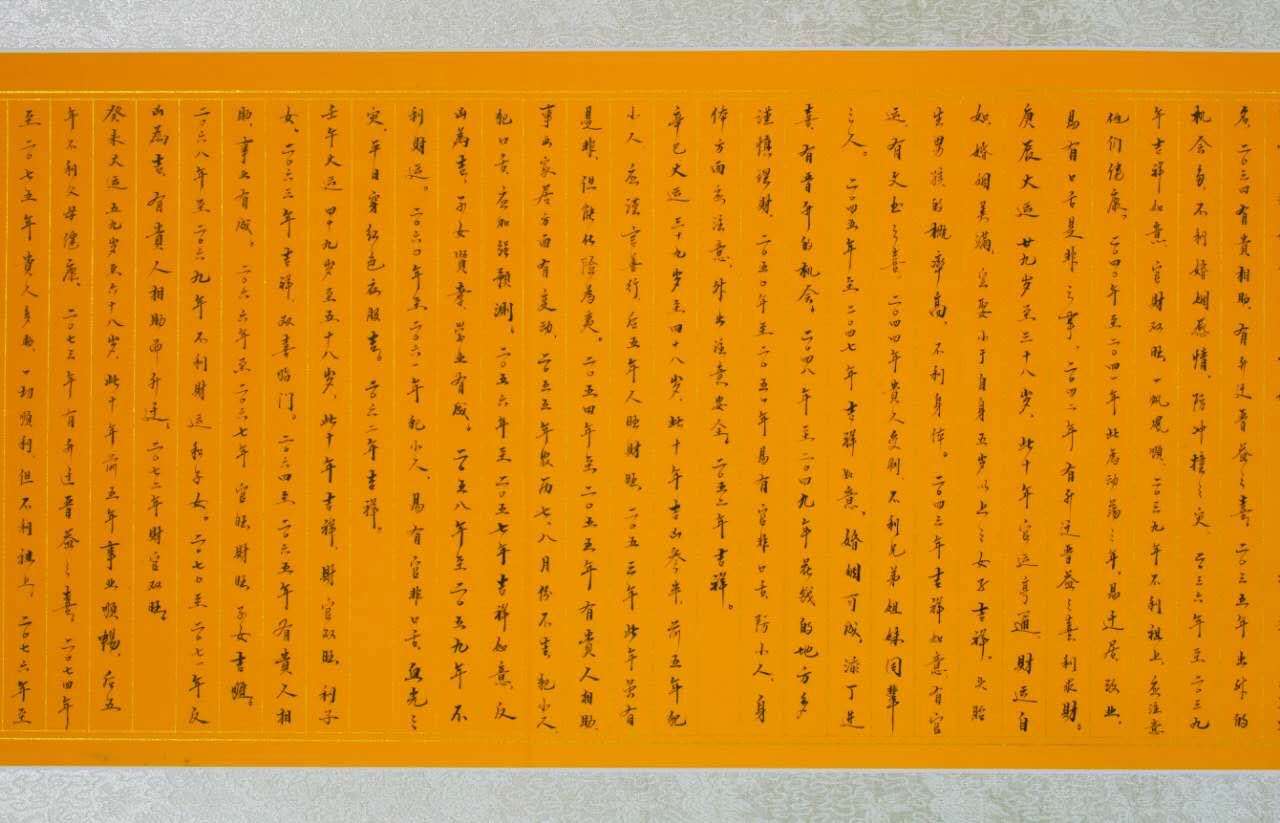 名。二〇三四有贵相助，有升迁晋益之喜。二〇三五年出外的
机会多，不利婚姻感情，防冲撞之灾。二〇三六年至二〇三九
年吉祥如意，官财双旺，一帆风顺。二〇三九年不利祖上，应注意
他们健康。二〇四〇年至二〇四一年此为动荡之年。易迁居改业，
易有口舌是非之事。二〇四二年有升迁晋益之喜，利求财。
庚辰大运廿九岁至三十八岁，此十年官运亨通，财运自
如，婚姻美满，宜娶小于自身五岁以上之女子吉祥，头胎
生男孩的概率高，不利身体。二〇四三年吉祥如意，有官
运，有文书之喜。二〇四四年贵人受制，不利兄弟姐妹同辈
之人。二〇四五年至二〇四七年吉祥如意。婚姻可成，添丁进
喜，有晋升的机会。二〇四八年至二〇四九年花钱的地方多，
谨慎理财。二〇五〇年至二〇五一年易有官非口舌，防小人，身
体方面要注意，外出注意安全。二〇五二年吉祥。
辛巳大运三十九岁至四十八岁，此十年吉凶参半，前五年犯
小人，应谨言善行，后五年人旺财旺。二〇五三年此年虽有
是非，但能化险为夷。二〇五四年至二〇五五年有贵人相助，
事业家居方面有变动，二〇五五年农历七、八月份不吉，犯小人
犯口舌，应加强预测。二〇五六年至二〇五七年吉祥如意，反
凶为吉，子女贤孝，学业有成。二〇五八年至二〇五九年不
利财运。二〇六〇年至二〇六一年犯小人，易有官非口舌，血光之
灾，平日穿红色衣服吉。二〇六二年吉祥。
壬午大运四十九岁至五十八岁，此十年吉祥，财官双旺，利子
女。二〇六三年吉祥，双喜临门。二〇六四至二〇六五年有贵人相
助，事业有成。二〇六六年至二〇六七年官旺，财旺，子女吉顺。
二〇六八年至二〇六九年不利财运和子女。二〇七〇至二〇七一年反
凶为吉，有贵人相助而升迁。二〇七二年财官双旺。
癸未大运五九岁至六十八岁，此十年前五年事业顺畅，后五
年不利父母健康。二〇七三年有升迁晋益之喜。二〇七四年
至二〇七五年贵人多助，一切顺利但不利祖上。二〇七六年至